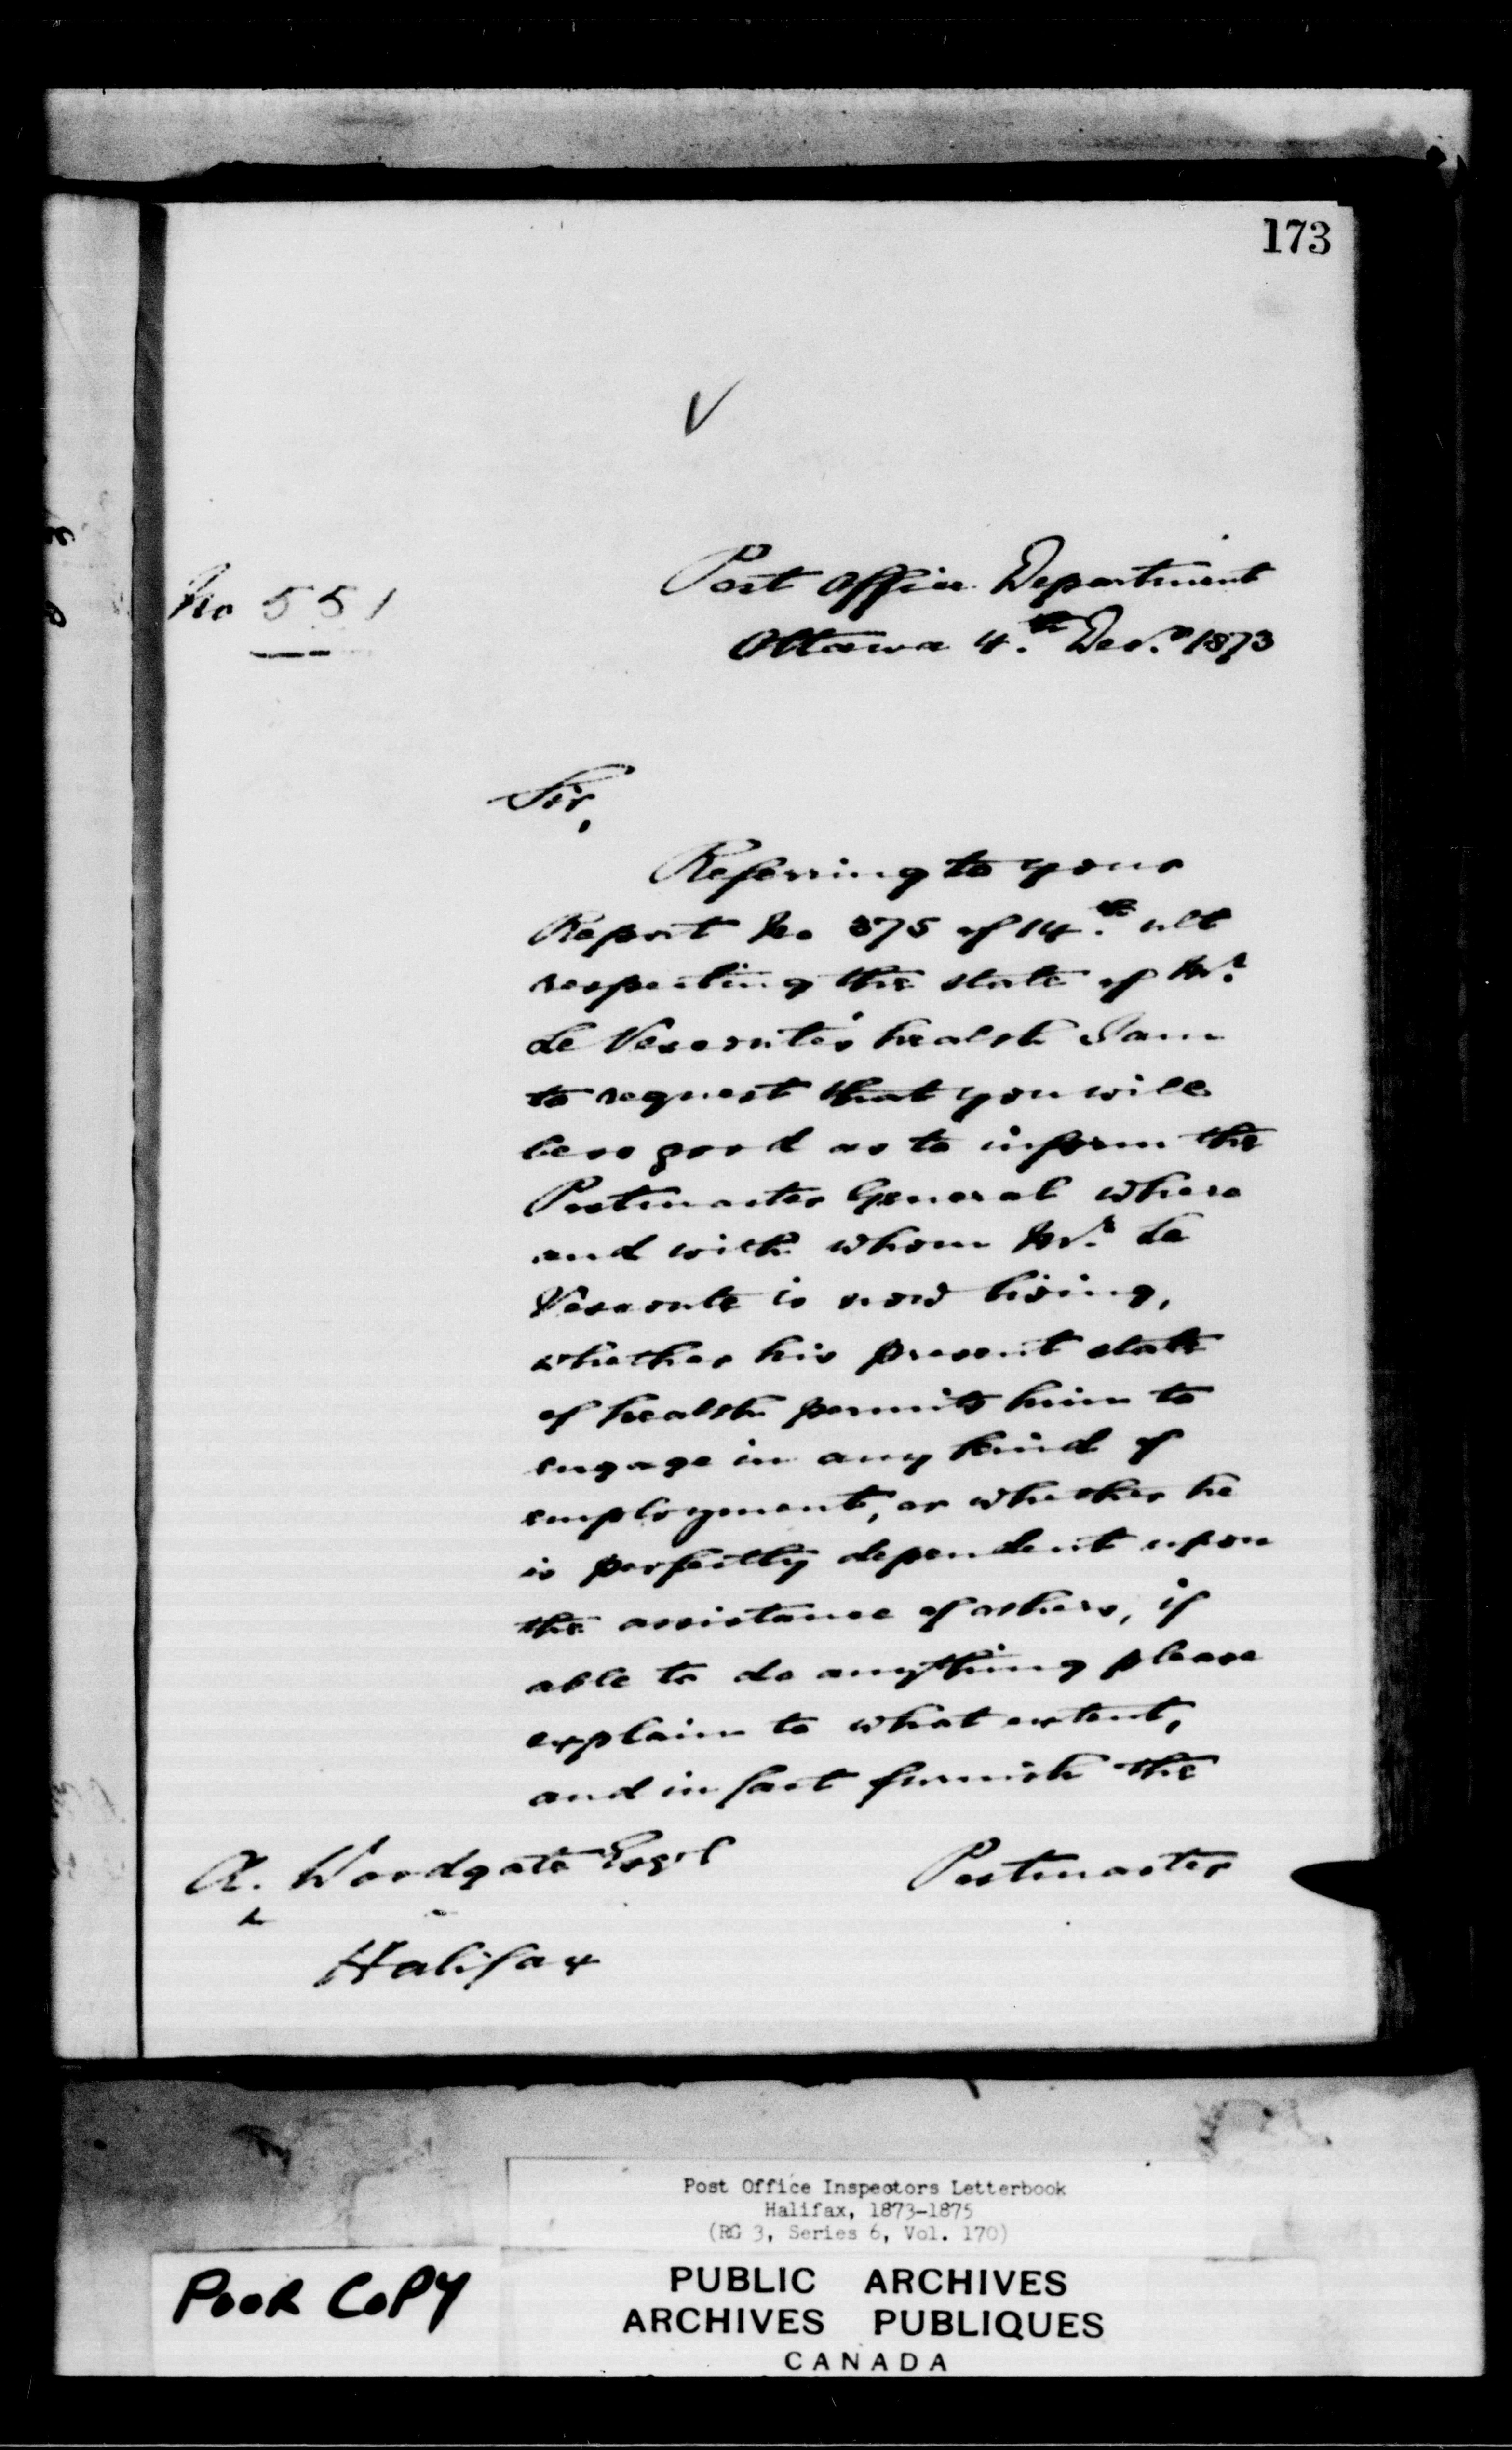 173
No 551
Post Office Department
Ottawa 4.th Decr. 1873
Sir,
Referring to your
Report No 375 of 14.th ult
respecting the state of Mr.
de Vexeonte's health I am
to request that you will
be so good as to inform the
Postmaster General where
and with whom Mr. de
is now living,
whether his present state
of health permits him to
engage in any kind of
employment, or whether he
is perfectly dependent upon
the assistance of others, if
able to do anything please
explain to what extent,
and in fact furnish the
A. Woodgate Esqre
Postmaster
Halifax
Post Office Inspectors Letterbook
Halifax, 1873-1875
(RG 3, Series 6, Vol. 170)
POOR COPY
PUBLIC ARCHIVES
ARCHIVES PUBLIQUES
CANADA